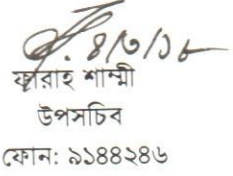 ৪/৩/১৮
ফারাহ শাম্মী
উপসচিব
ফোন: ৯১৪৪২৪৬